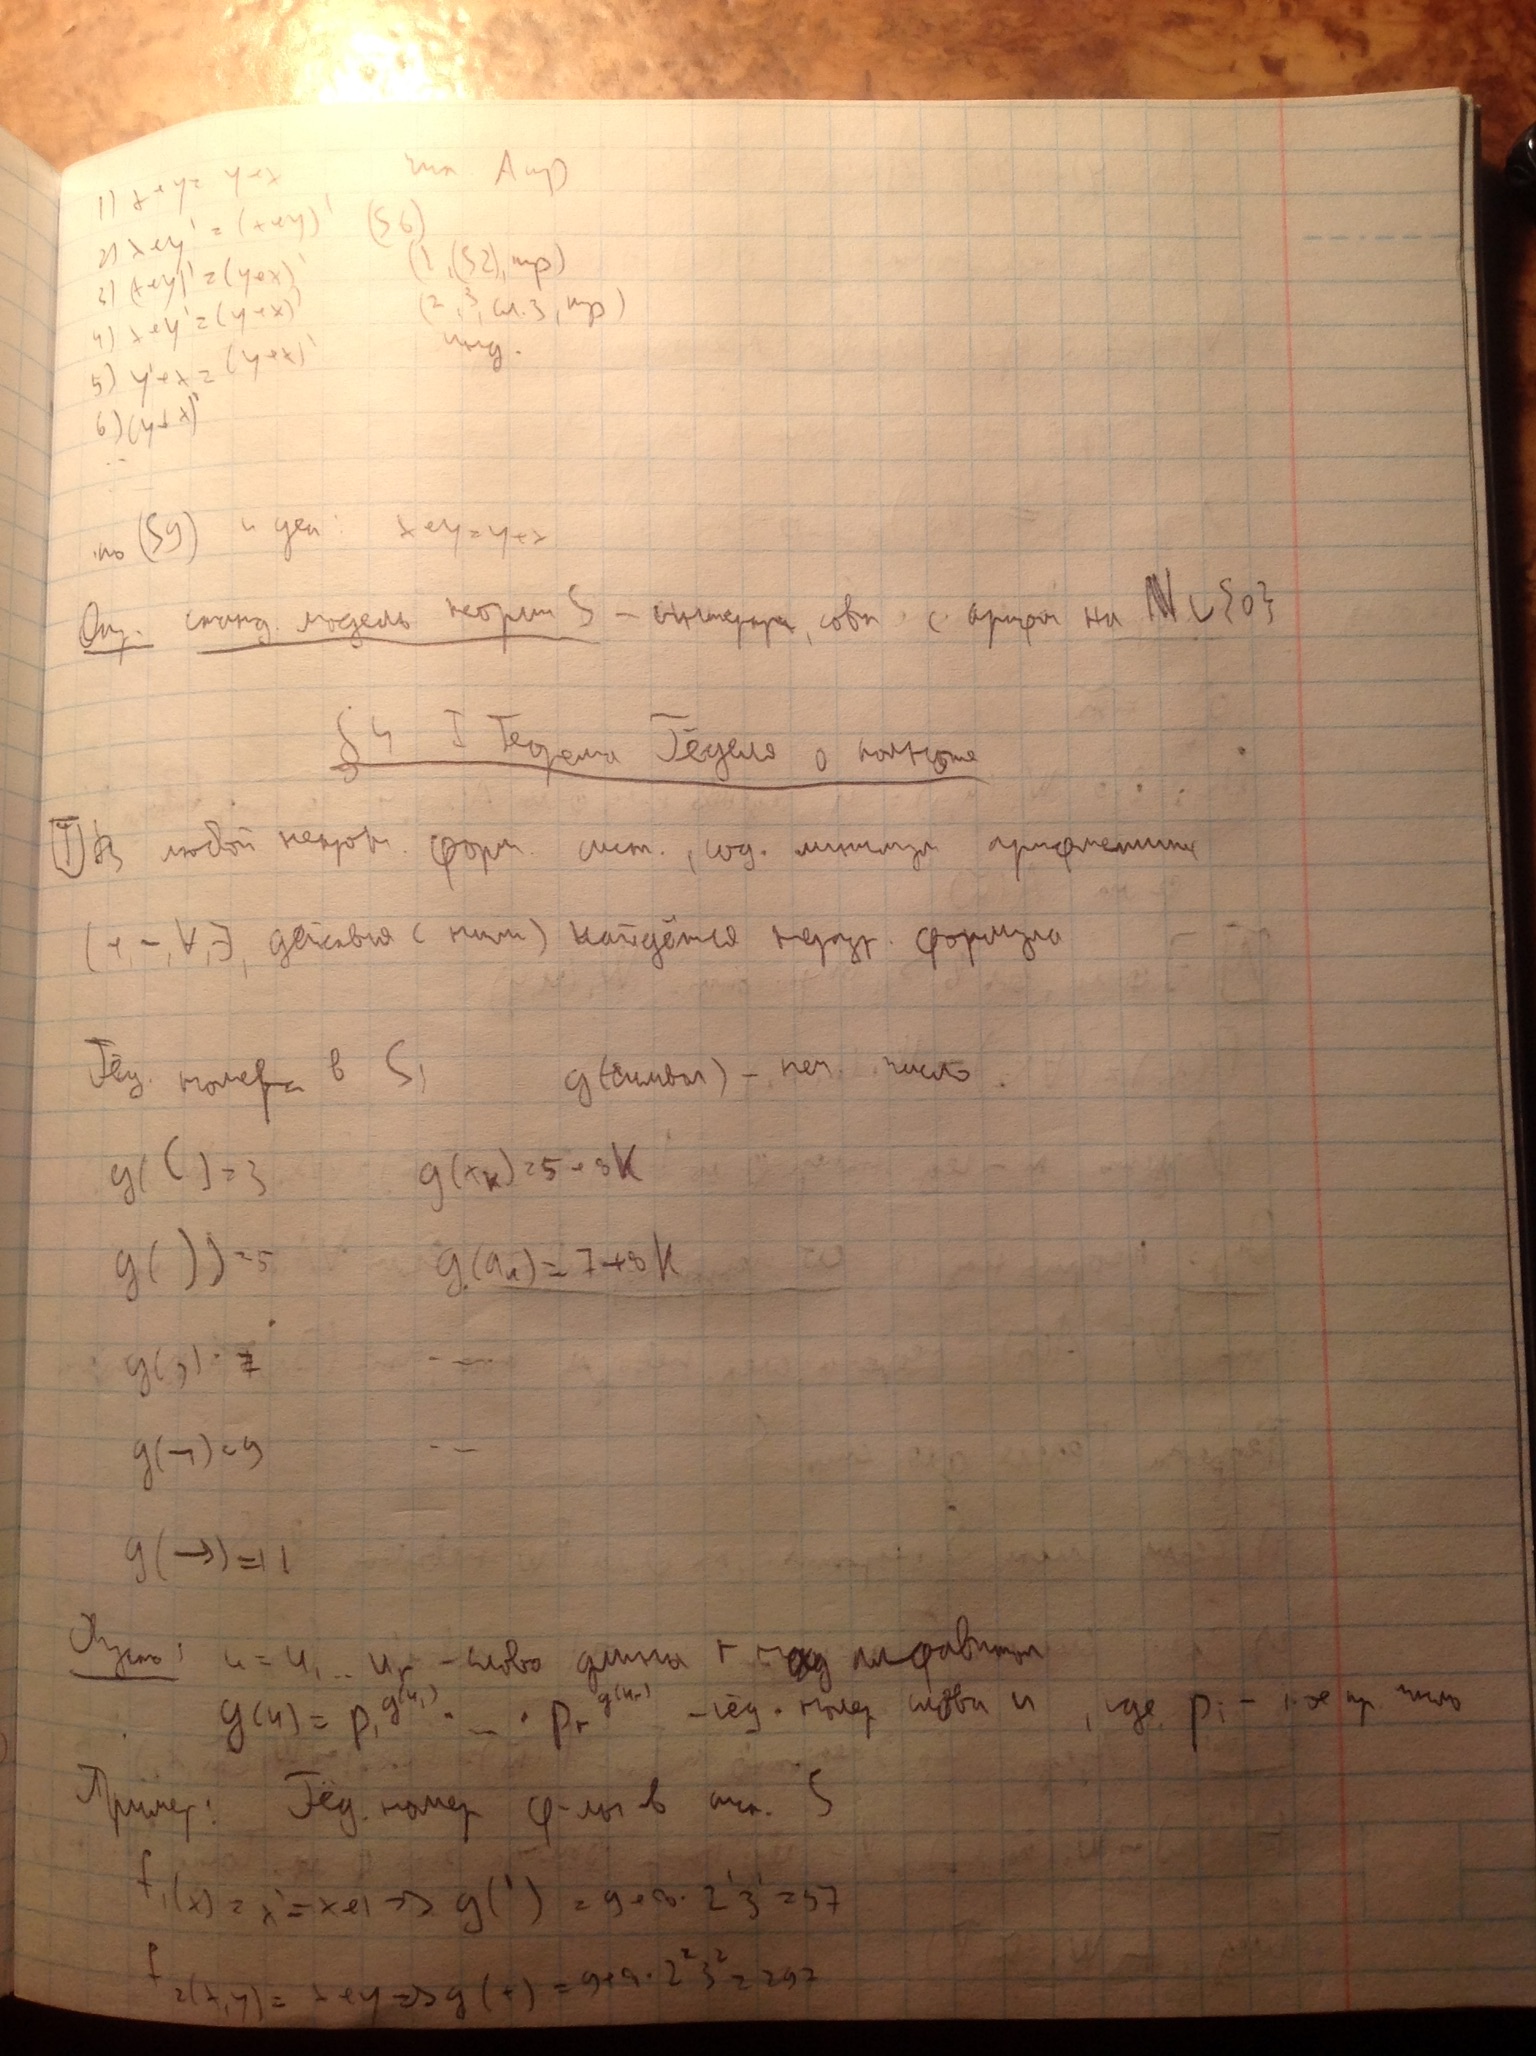 1) x+y = y+x гип. A пр
2) x+y' = (x+y)' (S6)
3) (x+y)' = (y+x)' (1, (S2), mp)
4) x+y' = (y+x)' (2, 3, сл.3, mp)
5) y'+x = (y+x)' инд.
6) (y+x)'
...
по (S9) и ден: x+y=y+x
Опр. станд. модель теории S – интерпр, совп с арифм на N ∪ {0}
§4 I Теорема Гёделя о полноте
(T) В любой непрот. форм. сист., сод. минимум арифметики
(+, –, ∀, ∃, действия с ними) найдётся неразр. формула
Гёд. номера в S, g(символ) – неч. число.
g( ( ) = 3 g(x_k) = 5+8k
g( ) ) = 5 g(a_k) = 7+8k
g(,) = 7 ---
g(¬) = 9 ---
g(→) = 11
Пусть: u = u_1 ... u_r – слово длины r над алфавитом
g(u) = p_1^{g(u_1)} · ... · p_r^{g(u_r)} – гёд. номер слова u, где p_i – i-ое пр. число
Пример: Гёд. номер ф-лы в сист. S
f_1(x) = x' = x+1 => g(') = 9+8·2^1 3^1 = 57
f_2(x,y) = x+y => g(+) = 9+8·2^2 3^2 = 297